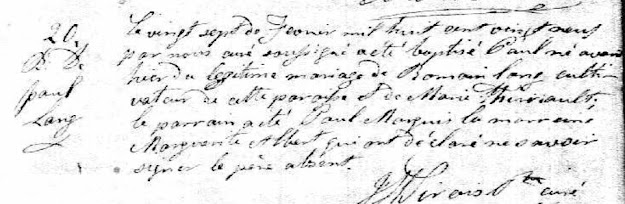 20.
B. 
Paul
Lang
Le vingt sept de Fevrier mil huit cent vingt neuf
par nous curé soussigné a été baptisé Paul né avant
hier du légitime mariage de Romain Lang culti
vateur de cette paroisse & de Marie Theriault.
le parrain a été Paul Marquis la marraine
Marguerite Albert qui ont déclaré ne savoir
signer le père absent.
Sirois Ptre curé